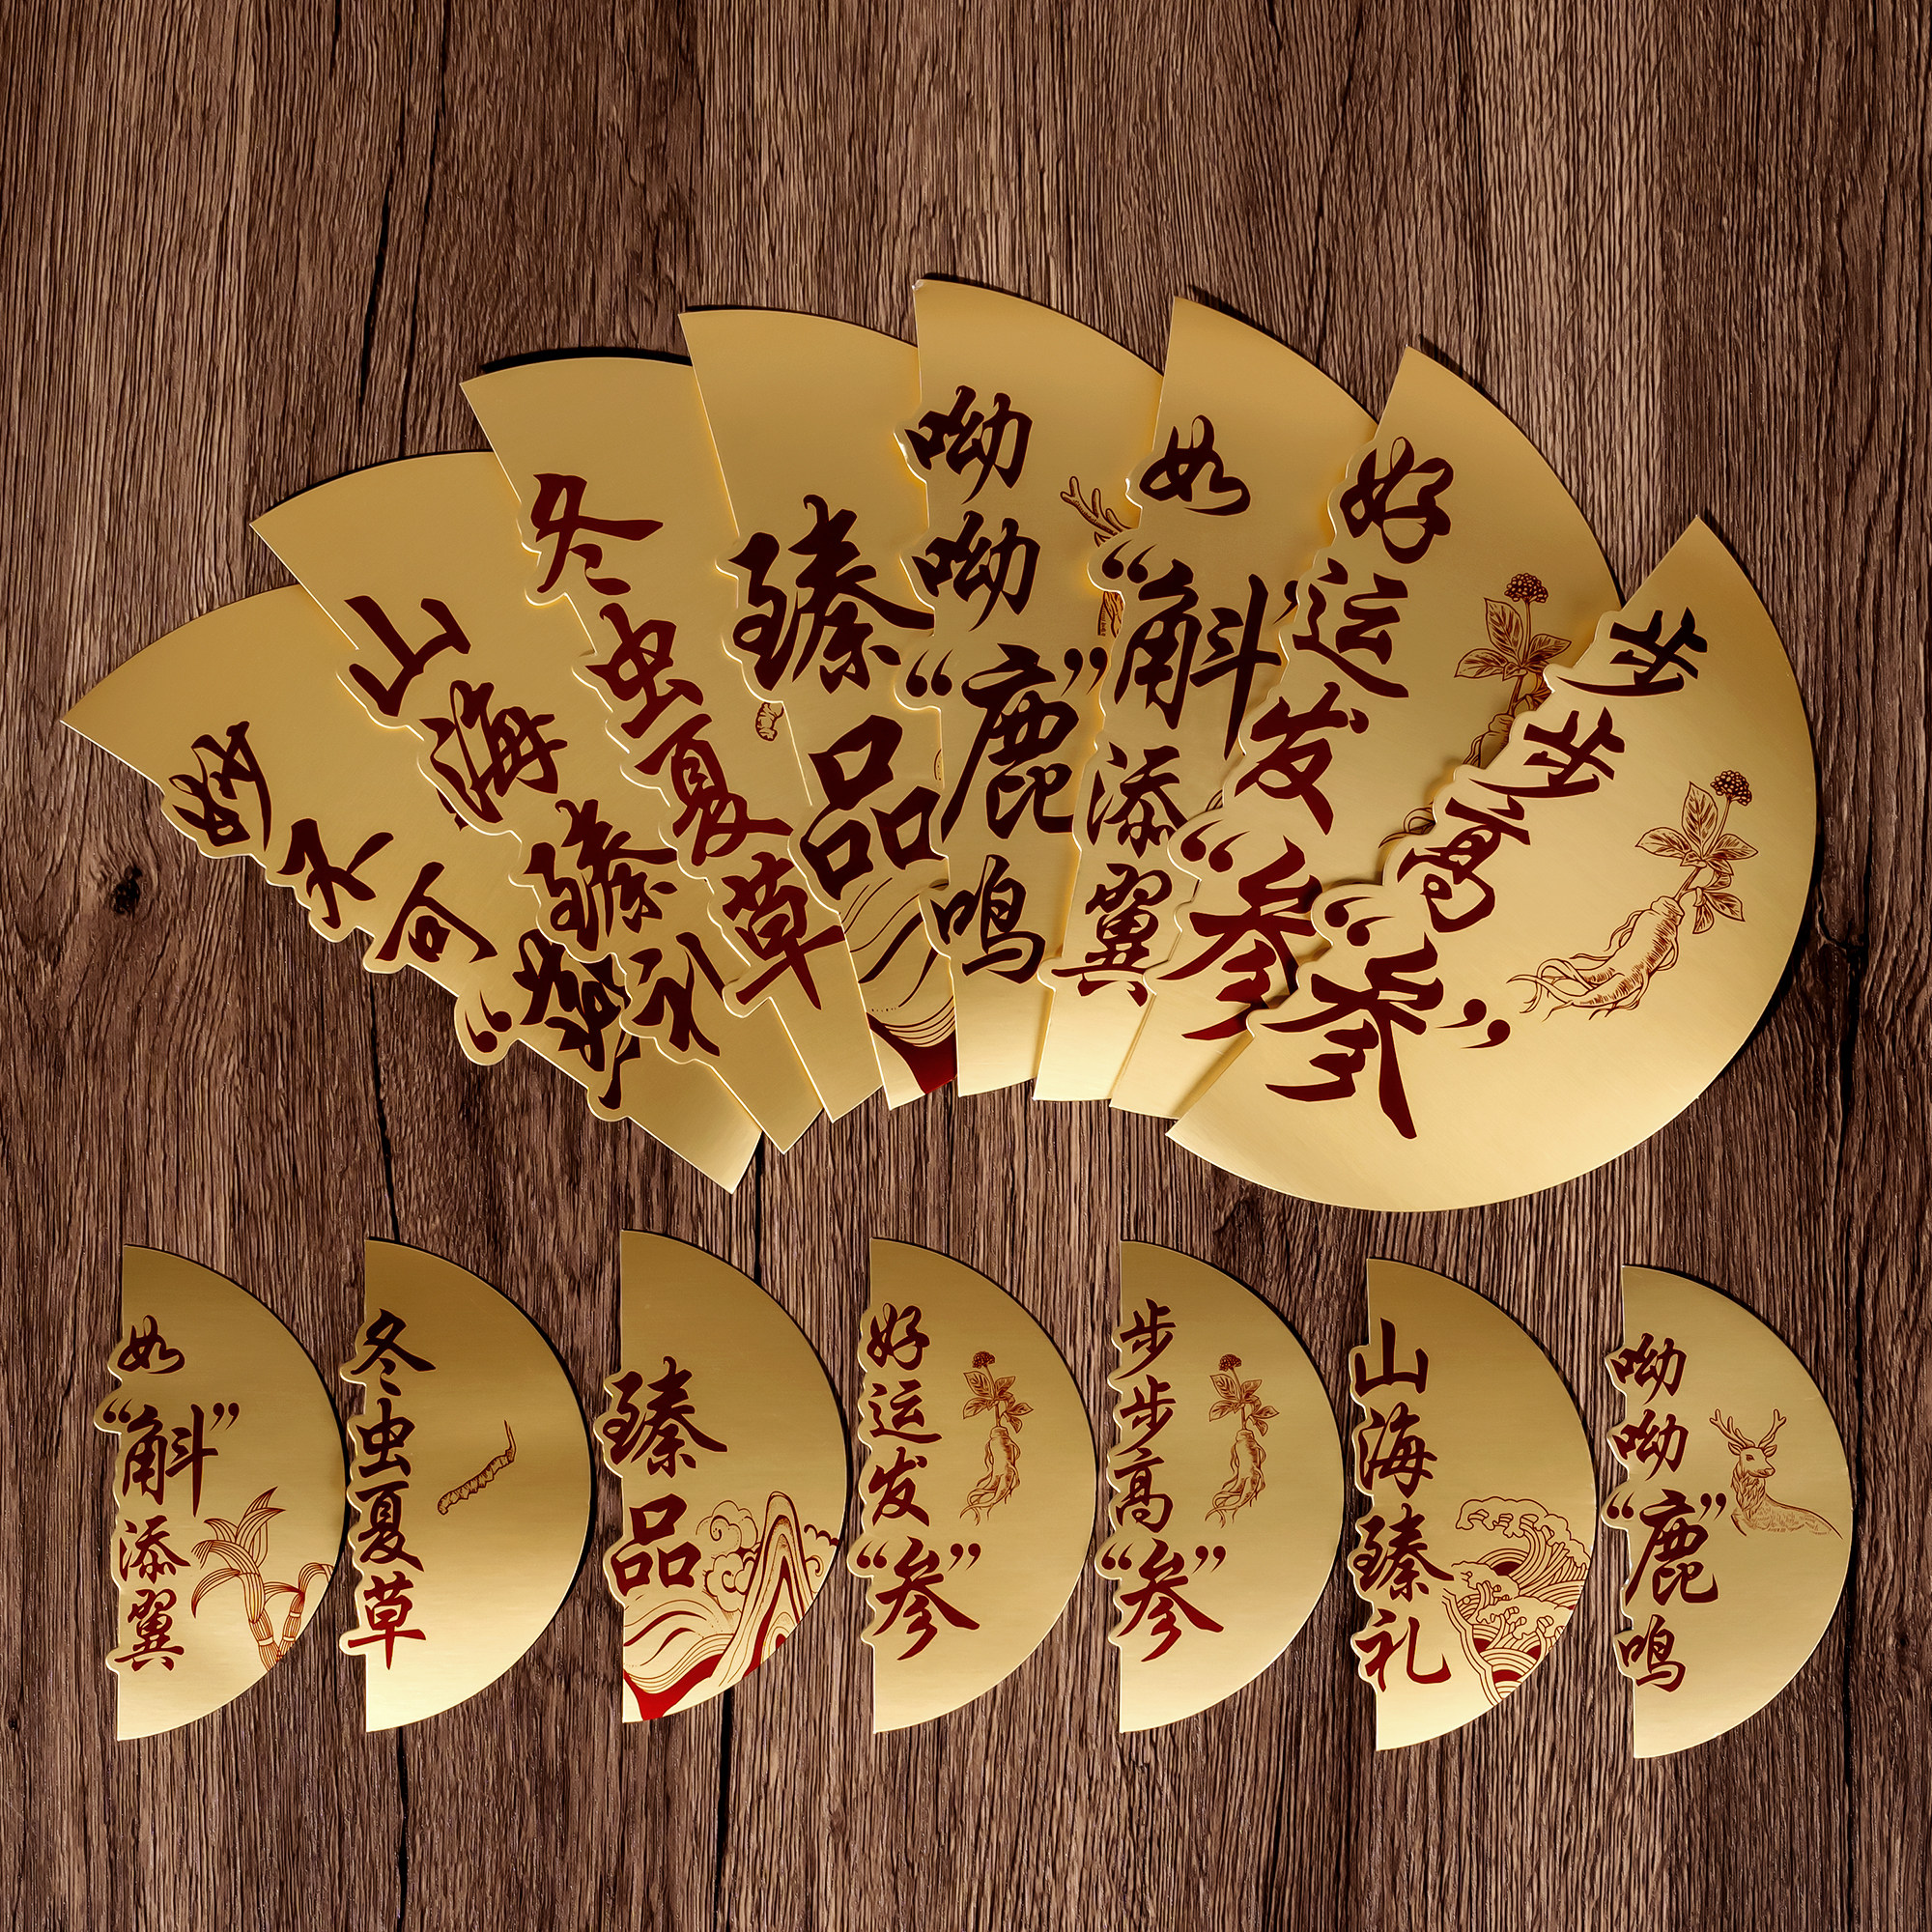 妙不可“燕
山海臻礼
冬虫夏草
臻品
呦呦“鹿”鸣
如“斛”添翼
好运发“参
步步高“参”
如“斛”添翼
冬虫夏草
臻品
好运发“参”
步步高“参”
山海臻礼
呦呦“鹿”鸣